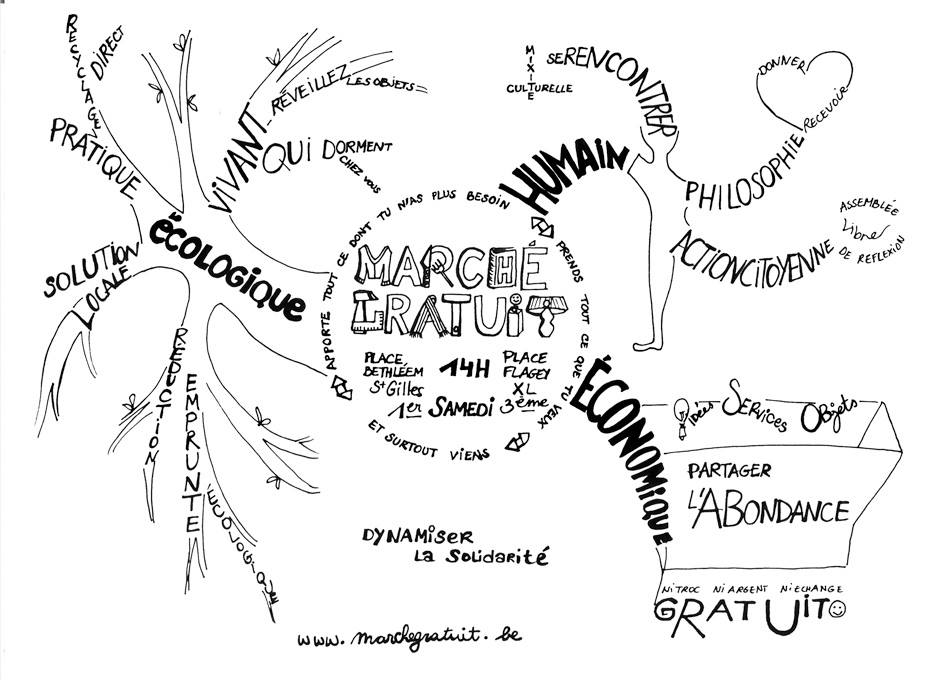 MARCHÉ
GRATUIT
PLACE BETHLÉEM
St Gilles
14H
PLACE FLAGEY
XL
1er SAMEDI 3ème
APPORTE TOUT CE DONT TU N'AS PLUS BESOIN
PRENDS TOUT CE QUE TU VEUX
ET SURTOUT VIENS
écologique
PRATIQUE
RECYCLAGE
DIRECT
ViVANT
RÉVEILLEZ LES OBJETS
QUI DORMENT
CHEZ VOUS
SOLUTION
LOCALE
RÉDUCTION
EMPRUNTE
ÉCOLOGIQUE
HUMAiN
SE RENCONTRER
MIXITE
CULTURELLE
PHILOSOPHIE
DONNER
RECEVOIR
ACTION CITOYENNE
ASSEMBLÉE
Libre
DE REFLEXION
ÉCONOMiQUE
Idées Services Objets
PARTAGER
L'ABONDANCE
Ni TROC Ni ARGENT Ni ECHANGE
GRATUiT
DYNAMiSER
LA SOLidARité
www.marchegratuit.be